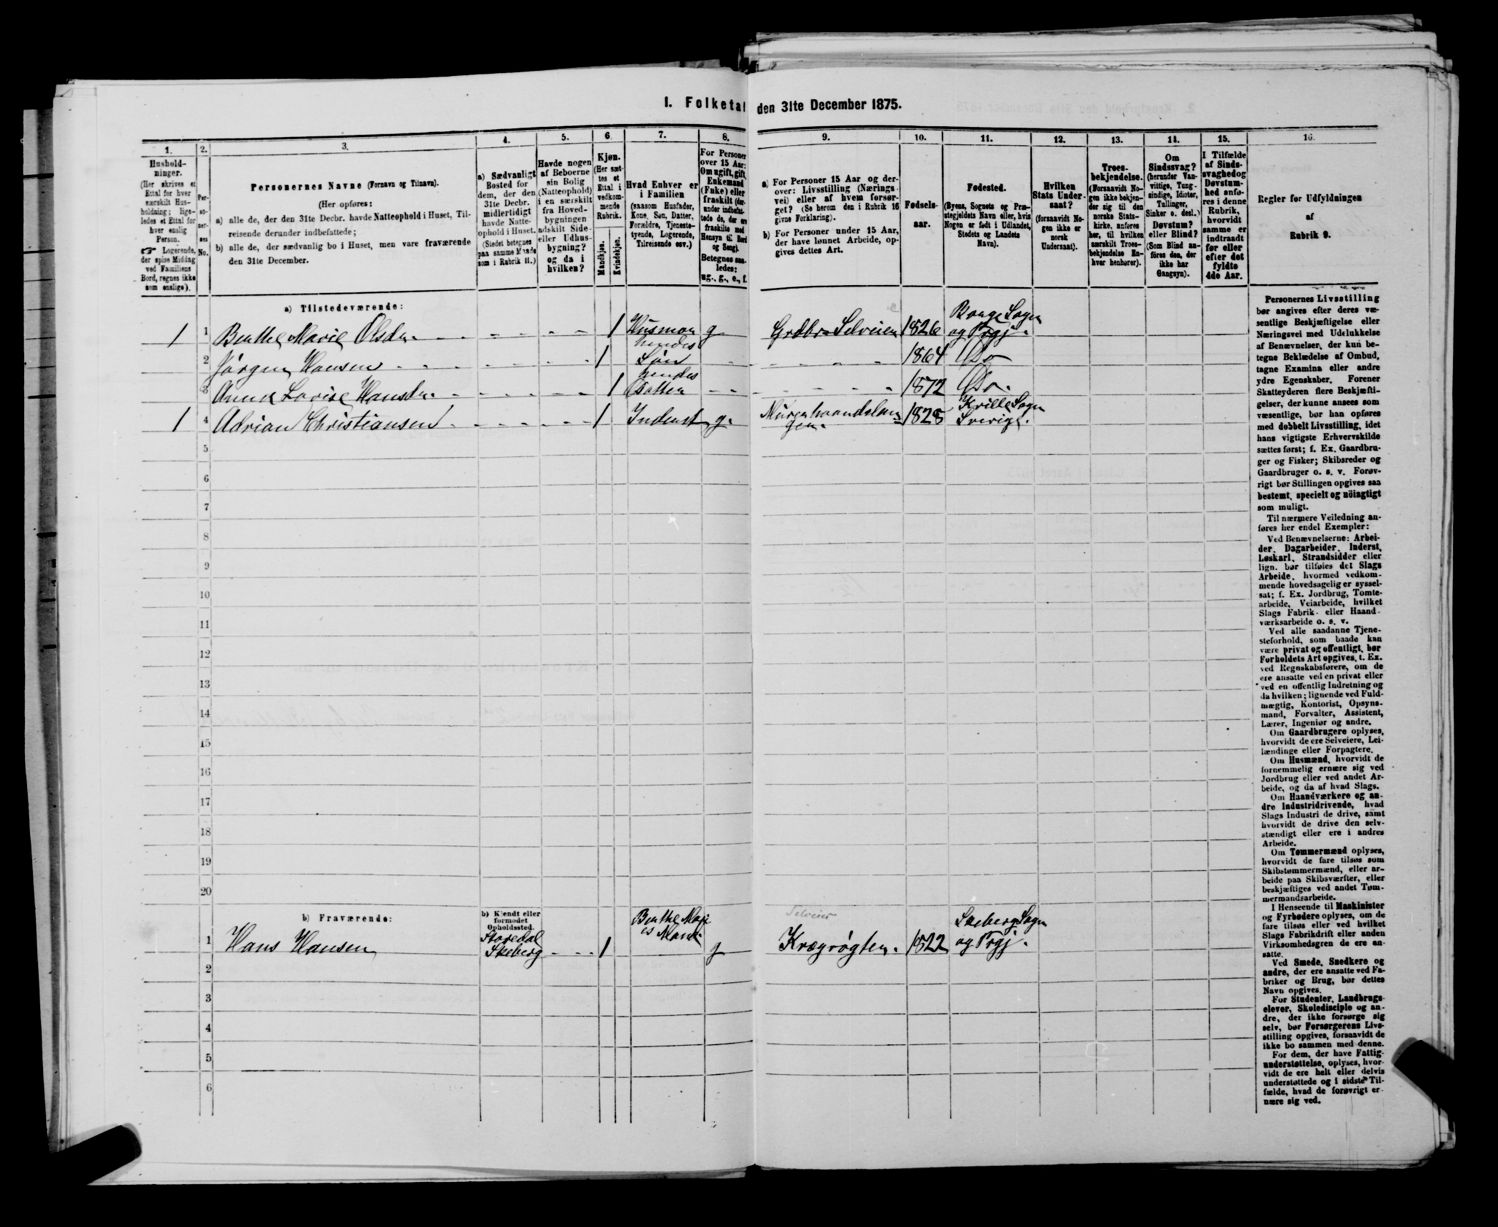 I. Folketal den 31te December 1875.
1.
Husholdninger.
(Her skrives et
Ettal for hver
særskilt Husholdning; ligeledes et Ettal for
hver enslig
Person.
Logerende,
der spise Middag
ved Familiens
Bord, regnes ikke
som enslige).
2.
Personernes
No.
3.
Personernes Navne (Fornavn og Tilnavn).
(Her opføres:
a) alle de, der den 31te Decbr. havde Natteophold i Huset, Tilreisende derunder indbefattede;
b) alle de, der sædvanlig bo i Huset, men vare fraværende
den 31te December.
4.
a) Sædvanligt
Bosted for
dem, der den
31te Decbr.
midlertidigt
havde Natteophold i Huset.
(Stedet betegnes
paa samme Maade
som i Rubrik 11.)
5.
Havde nogen
af Beboerne
sin Bolig
(Natteophold)
i en særskilt
fra Hovedbygningen
adskilt Side-
eller Udhusbygning?
og da i
hvilken?
6.
Kjøn.
(Her sættes et
Ettal i
vedkommende
Rubrik.
Mandkjøn.
Kvindekjøn.
7.
Hvad Enhver er
i Familien
(saasom Husfader,
Kone, Søn, Datter,
Forældre, Tjenestetyende, Logerende,
Tilreisende osv.)
8.
For Personer
over 15 Aar:
Om ugift, gift,
Enkemand
(Enke) eller
fraskilt
Betegnes saaledes:
ug., g., e., f.
9.
a) For Personer 15 Aar og derover: Livsstilling (Næringsvei) eller af hvem forsørget? (Se herom den i Rubrik 16
givne Forklaring).
b) For Personer under 15 Aar,
der have lønnet Arbeide, opgives dettes Art.
10.
Fødselsaar.
11.
Fødested.
(Byens, Sognets og Præstegjeldets Navn eller, hvis
Nogen er født i Udlandet,
Stedets og Landets
Navn).
12.
Hvilken
Stats Undersaat?
(forsaavidt Nogen ikke er
norsk
Undersaat).
13.
Troesbekjendelse.
(Forsaavidt Nogen ikke bekjender sig til den
norske Statskirke, anføres
her, til hvilken
særskilt Troesbekjendelse Enhver henhører).
14.
Om
Sindssvag?
(herunder Vanvittige, Tungsindige, Idioter,
Tullinger,
Sinker o. desl.)
Døvstum?
eller Blind?
(Som Blind anføres den, der
ikke har
Gangsyn).
15.
I Tilfælde
af Sindssvaghed og
Døvstumhed anføres i denne
Rubrik,
hvorvidt
samme er
indtraadt
før eller
efter det
fyldte
4de Aar.
16.
Regler for Udfyldningen
af
Rubrik 9.
a) Tilstedeværende:
1 1 Benthe Marie Olsdr. 1 Husmon g Grdbr. Selveier 1826 Sogn
og Prgj.
2 Jørgen Hansen 1 hendes
Søn 1864 Do
3 Anne Lovise Hansdr. 1 hendes
Datter 1872 Do.
1 4 Adrian Christiansen 1 Inderst g. 1828 Krille Sogn
Sverige.
5
6
7
8
9
10
11
12
13
14
15
16
17
18
19
20
b) Fraværende:
b) Kjendt eller
formodet
Opholdssted.
1 Hans Hansen Storedal
Skeberg 1 Benthe Maries Mand g Selveier
Krægrøgter. 1822 Sogn
og Prgj.
2
3
4
5
6
Personernes Livsstilling
bør angives efter deres væsentlige Beskjæftigelse eller
Næringsvei med Udelukkelse
af Benævnelser, der kun betegne Beklædelse af Ombud,
tagne Examina eller andre
ydre Egenskaber. Forener
Skatteyderen flere Beskjæftigelser, der kunne ansees som
væsentlige, bør han opføres
med dobbelt Livsstilling, idet
hans vigtigste Erhvervskilde
sættes først; f. Ex. Gaardbruger og Fisker; Skibsreder og
Gaardbruger o. s. v. Forøvrigt bør Stillingen opgives saa
bestemt, specielt og nöiagtigt
som muligt.
Til nærmere Veiledning anføres her endel Exempler:
Ved Benævnelserne: Arbeider, Dagarbeider, Inderst,
Løskarl, Strandsidder eller
lign. bør tilføies det Slags
Arbeide, hvormed vedkommende hovedsagelig er sysselsat; f. Ex. Jordbrug, Tomtearbeide, Veiarbeide, hvilket
Slags Fabrik- eller Haandværksarbeide o. s. v.
Ved alle saadanne Tjenesteforhold, som baade kan
være privat og offentligt, bør
Forholdets Art opgives, t. Ex.
ved Regnskabsførere, om de
ere ansatte ved en privat eller
ved en offentlig Indretning og
da hvilken; lignende ved Fuldmægtig, Kontorist, Opsynsmand, Forvalter, Assistent,
Lærer, Ingeniør og andre.
Om Gaardbrugere oplyses,
hvorvidt de ere Selveiere, Leilændinge eller Forpagtere.
Om Husmænd, hvorvidt de
fornemmelig ernære sig ved
Jordbrug eller ved andet Arbeide, og da af hvad Slags.
Om Haandværkere og andre Industridrivende, hvad
Slags Industri de drive, samt
hvorvidt de drive den selvstændigt eller ere i andres
Arbeide.
Om Tømmermænd oplyses,
hvorvidt de fare tilsøs som
Skibstømmermænd, eller arbeide paa Skibsværfter, eller
beskjæftiges ved andet Tømmermandsarbeide.
I Henseende til Maskinister
og Fyrbødere oplyses, om de
fare tilsøs eller ved hvilket
Slags Fabrikdrift eller anden
Virksomhedsgren de ere ansatte.
Ved Smede, Snedkere og
andre, der ere ansatte ved Fabriker og Brug, bør dettes
Navn opgives.
For Studenter, Landbrugselever, Skoledisciple og andre, der ikke forsørge sig
selv, bør Forsørgerens Livsstilling opgives, forsaavidt de
ikke bo sammen med denne.
For dem, der have Fattigunderstøttelse, oplyses, hvorvidt de ere helt eller delvis
understøttede og i sidste Tilfælde, hvad de forøvrigt ernære sig ved.